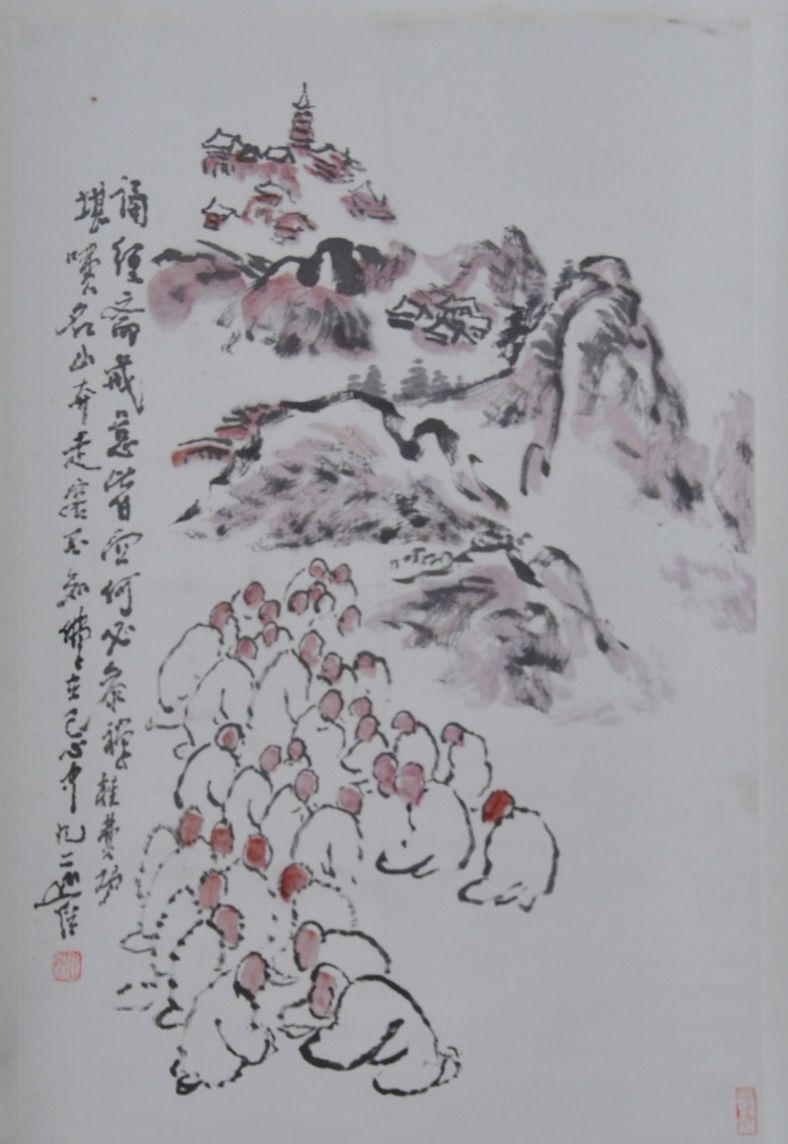 誦經齋戒意皆空何必參禪枉費功
堪嘆名山奔走客不知佛在己心中 九二